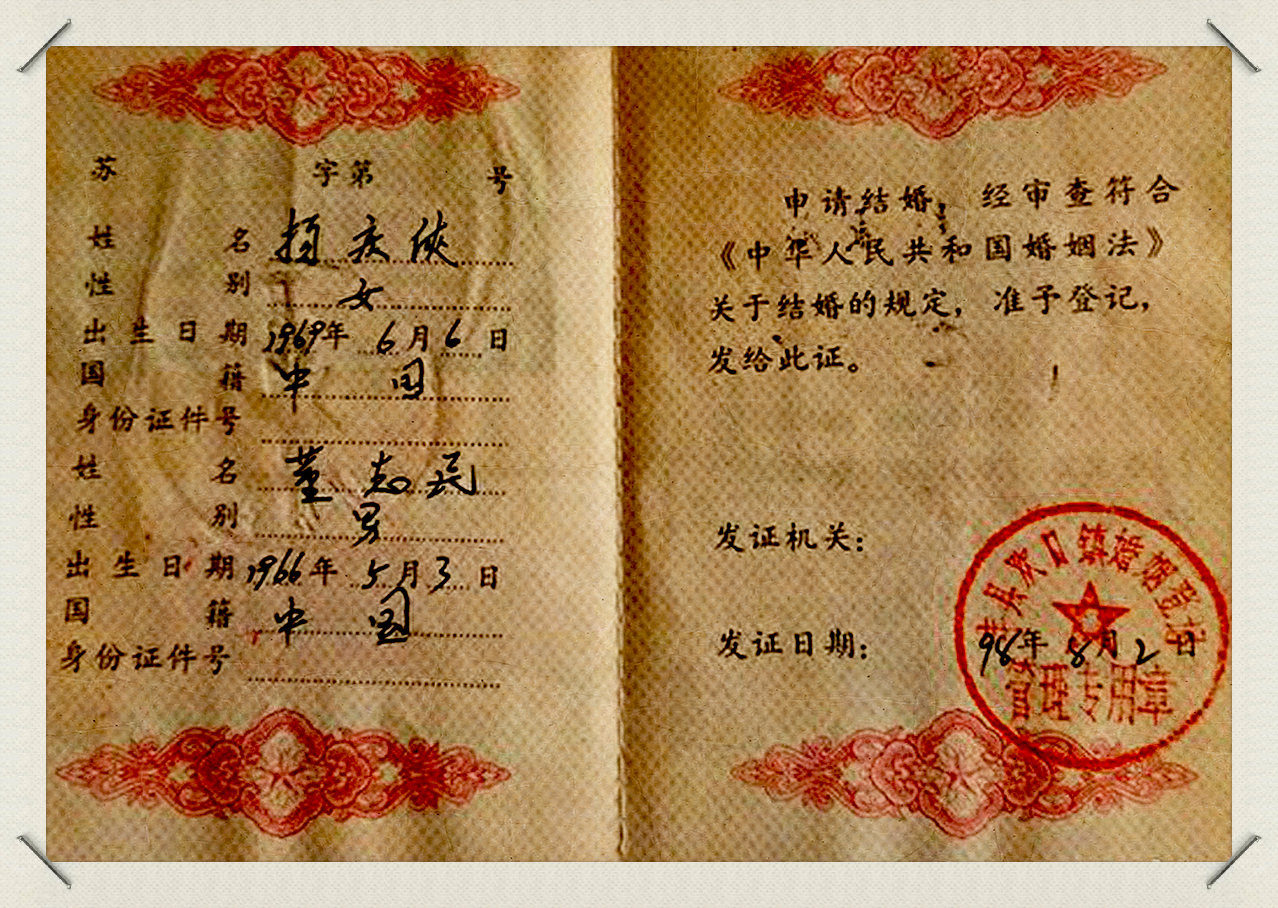 苏 字第 号
姓 名 杨庆侠
性 别 女
出生日期 1969年6月6日
国 籍 中国
身份证件号
姓 名 董志民
性 别 男
出生日期 1966年5月3日
国 籍 中国
身份证件号
申请结婚，经审查符合
《中华人民共和国婚姻法》
关于结婚的规定，准予登记，
发给此证。
发证机关：
县欢口镇婚姻登记
发证日期： 98年8月2日
管理专用章